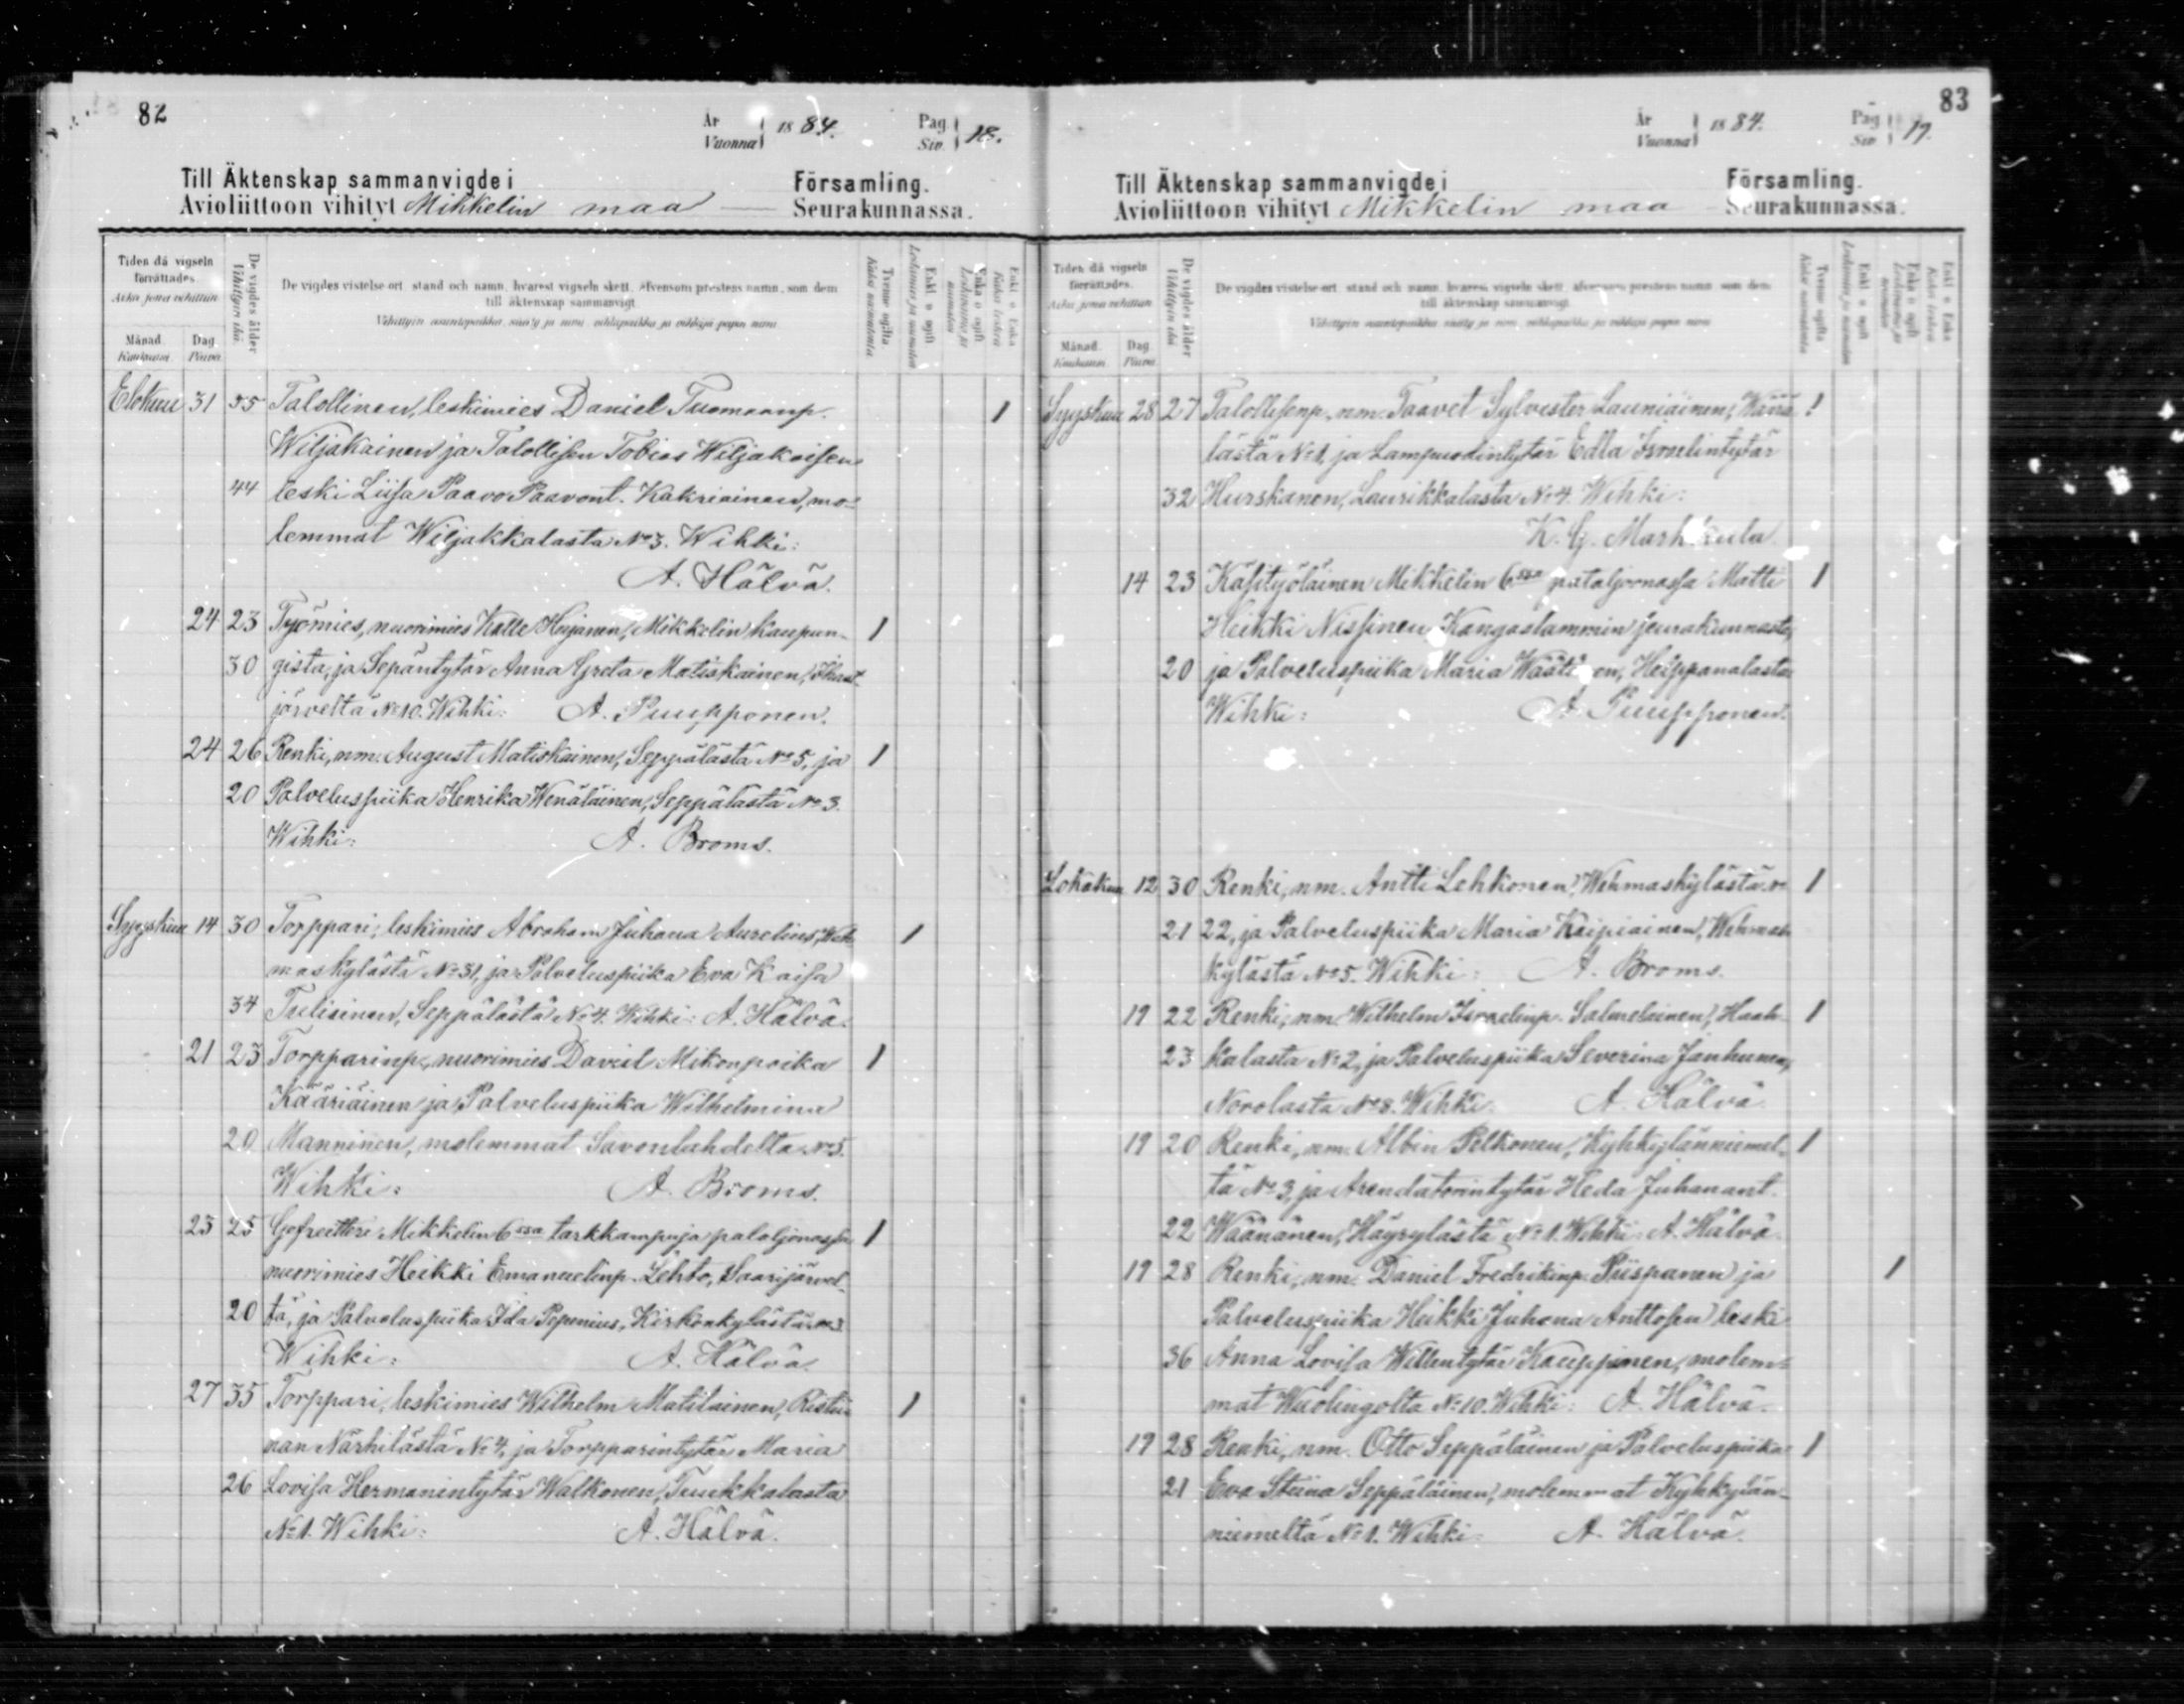 82
År
Vuonna
1884.
Pag
Siv.
18.
Till Äktenskap sammanvigde i Församling.
Avioliittoon vihityt Mikkelin maa Seurakunnassa.
Tiden då vigseln förrättades.
Aika jona vihittiin
Månad.
Kuukausi
Dag
Päivä
De vigdes ålder
Vihittyin ikä.
De vigdes vistelse ort, stand och namn, hvarest vigseln skett, äfvensom prestens namn, som dem
till äktenskap sammanvigt.
Vihittyin asuntopaikka, sääty ja nimi, vihkipaikka ja vihkijä papin nimi
Tvenne ogifta
Kaksi naimatonta
Enkl. o. ogift
Leskimies ja naimaton
Enka o. ogift
Leskivaimo ja naimaton
Enkl o Enka
Kaksi leskeä
Elokuu 31 55 Talollinen, leskimies Daniel Tuomaanp. 1
Wiljakainen ja Talollisen Tobias Wiljakaisen
44 leski Liisa Paavo Paavont. Kakriainen, mo-
lemmat Wiljakkalasta No 3. Wihki:
A. Hälvä.
24 23 Työmies, nuorimies Kalle Huijanen, Mikkelin kaupun- 1
30 gista, ja Sepäntytär Anna Greta Matiskainen,
järveltä No 10. Wihki: A. Puupponen.
24 26 Renki, nm. August Matiskainen, Seppälästä No 5, ja 1
20 Palveluspiika Henrika Wenäläinen, Seppälästä No 3.
Wihki: A. Broms.
Syyskuu 14 30 Torppari, leskimies Abraham Juhana Aurelius, Weh- 1
maskylästä No 31, ja Palveluspiika Eva Kaisa
34 Tulisinen, Seppälästä No 4. Wihki: A. Hälvä.
21 23 Torpparinp., nuorimies David Mikonpoika 1
Kääriäinen ja Palveluspiika Wilhelmina
20 Manninen, molemmat Savonlahdelta No 5.
Wihki: A. Broms.
23 25 Gefreitteri Mikkelin 6ssa tarkkampuja pataljonassa 1
nuorimies Heikki Emanuelinp. Lehto, Saarijärvel-
20 tä, ja Palveluspiika Ida Peponius, Kirkonkylästä No 3
Wihki: A. Hälvä.
27 35 Torppari, leskimies Wilhelm Matilainen, Ristii- 1
nan Närhilästä No 4, ja Torpparintytär Maria
26 Lovisa Hermanintytär Walkonen, Tuukkalasta
No 1. Wihki: A. Hälvä.
83
År
Vuonna
1884.
Pag
Siv
19.
Till Äktenskap sammanvigde i Församling.
Avioliittoon vihityt Mikkelin maa Seurakunnassa.
Tiden då vigseln förrättades.
Aika jona vihittiin
Månad.
Kuukausi
Dag
Päivä
De vigdes ålder
Vihittyin ikä
De vigdes vistelse-ort, stand och namn, hvarest vigseln skett, äfvensom prestens namn, som dem
till äktenskap sammanvigt.
Vihittyin asuntopaikka sääty ja nimi, vihkipaikka ja vihkijä papin nimi
Tvenne ogifta
Kaksi naimatonta
Enkl. o. ogift
Leskimies ja naimaton
Enka o. ogift
Leskivaimo ja naimaton
Enkl o Enka
Kaksi leskeä
Syyskuu 28 27 Talollisenp., nm. Taavet Sylvester Launiainen, 1
lästä No 1, ja Lampuodintytär Edla Israelintytär
32 Hurskanen, Laurikkalasta No 4. Wihki:
K. G. Markkula
14 23 Käsityöläinen Mikkelin 6ssa pataljoonassa Matti 1
Heikki Nissinen Kangaslammin seurakunnasta,
20 ja Palveluspiika Maria Heippanalasta
Wihki: A. Puupponen.
Lokakuu 12 30 Renki, nm. Antti Lehkonen, Wehmaskylästä No 1
21 22, ja Palveluspiika Maria Kaipiainen, Wehmas-
kylästä No 5. Wihki: A. Broms.
19 22 Renki, nm. Wilhelm Israelinp. Salmelainen, Haak- 1
23 kalasta No 2, ja Palveluspiika Severina Janhunen,
Norolasta No 8. Wihki: A. Hälvä.
19 20 Renki, nm. Albin Pelkonen, Kyhkylänniemel- 1
tä No 3, ja Arendatorintytär Heda Juhanant.
22 Wäänänen, Häyrylästä No 1. Wihki: A. Hälvä.
19 28 Renki, nm. Daniel Fredrikinp. Piispanen ja 1
Palveluspiika Heikki Juhana Anttosen leski
36 Anna Lovisa Willentytär Kauppinen, molem-
mat Wuolingolta No 10. Wihki: A. Hälvä.
19 28 Renki, nm. Otto Seppäläinen ja Palveluspiika 1
21 Eva Stiina Seppäläinen, molemmat Kyhkylän-
niemeltä No 1. Wihki: A. Hälvä.